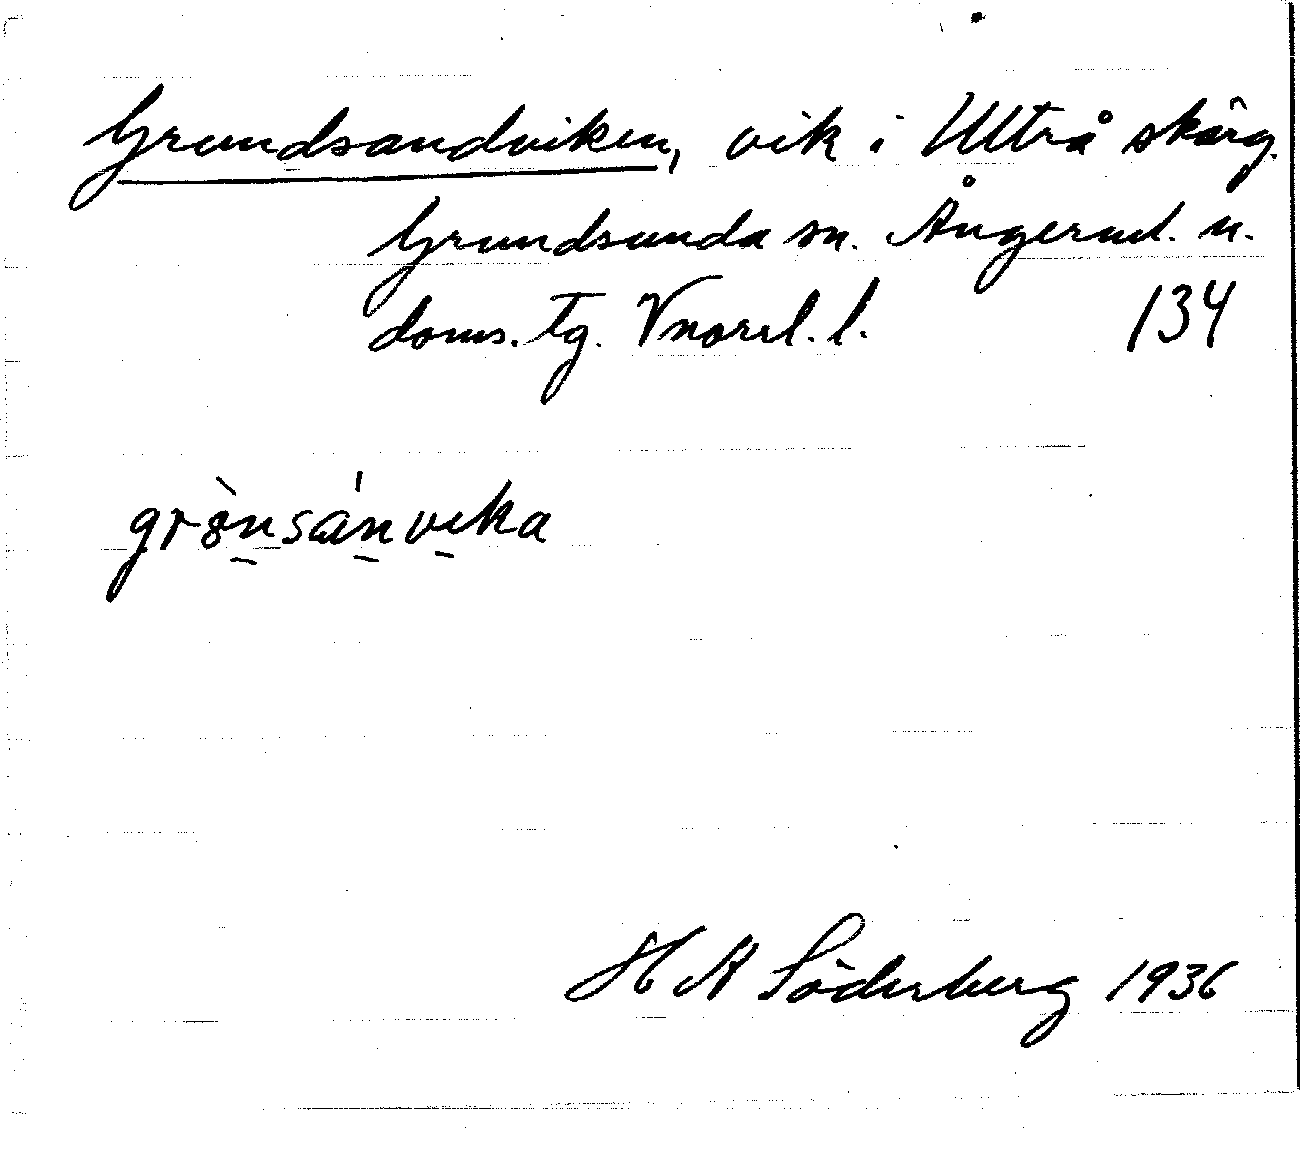 Grundsandviken, vik i Ultrå skärg.
Grundsunda sn. Ångerml. n.
doms. tg. Vnorrl. l. 134
grònsánvika
H A Söderberg 1936